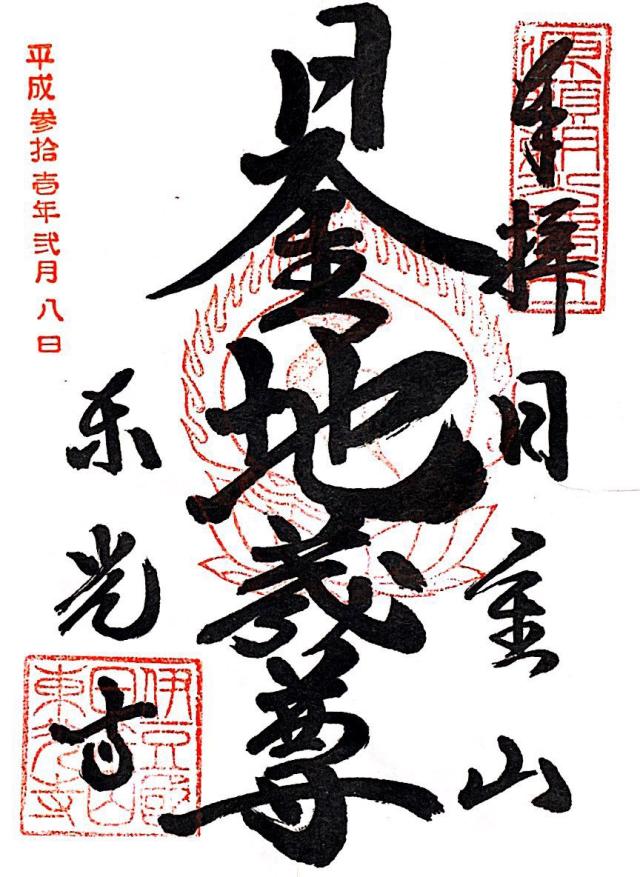 奉拝
日金山
日金地蔵尊
東光寺
伊豆國
日金山
東光寺
平成参拾壱年弐月八日